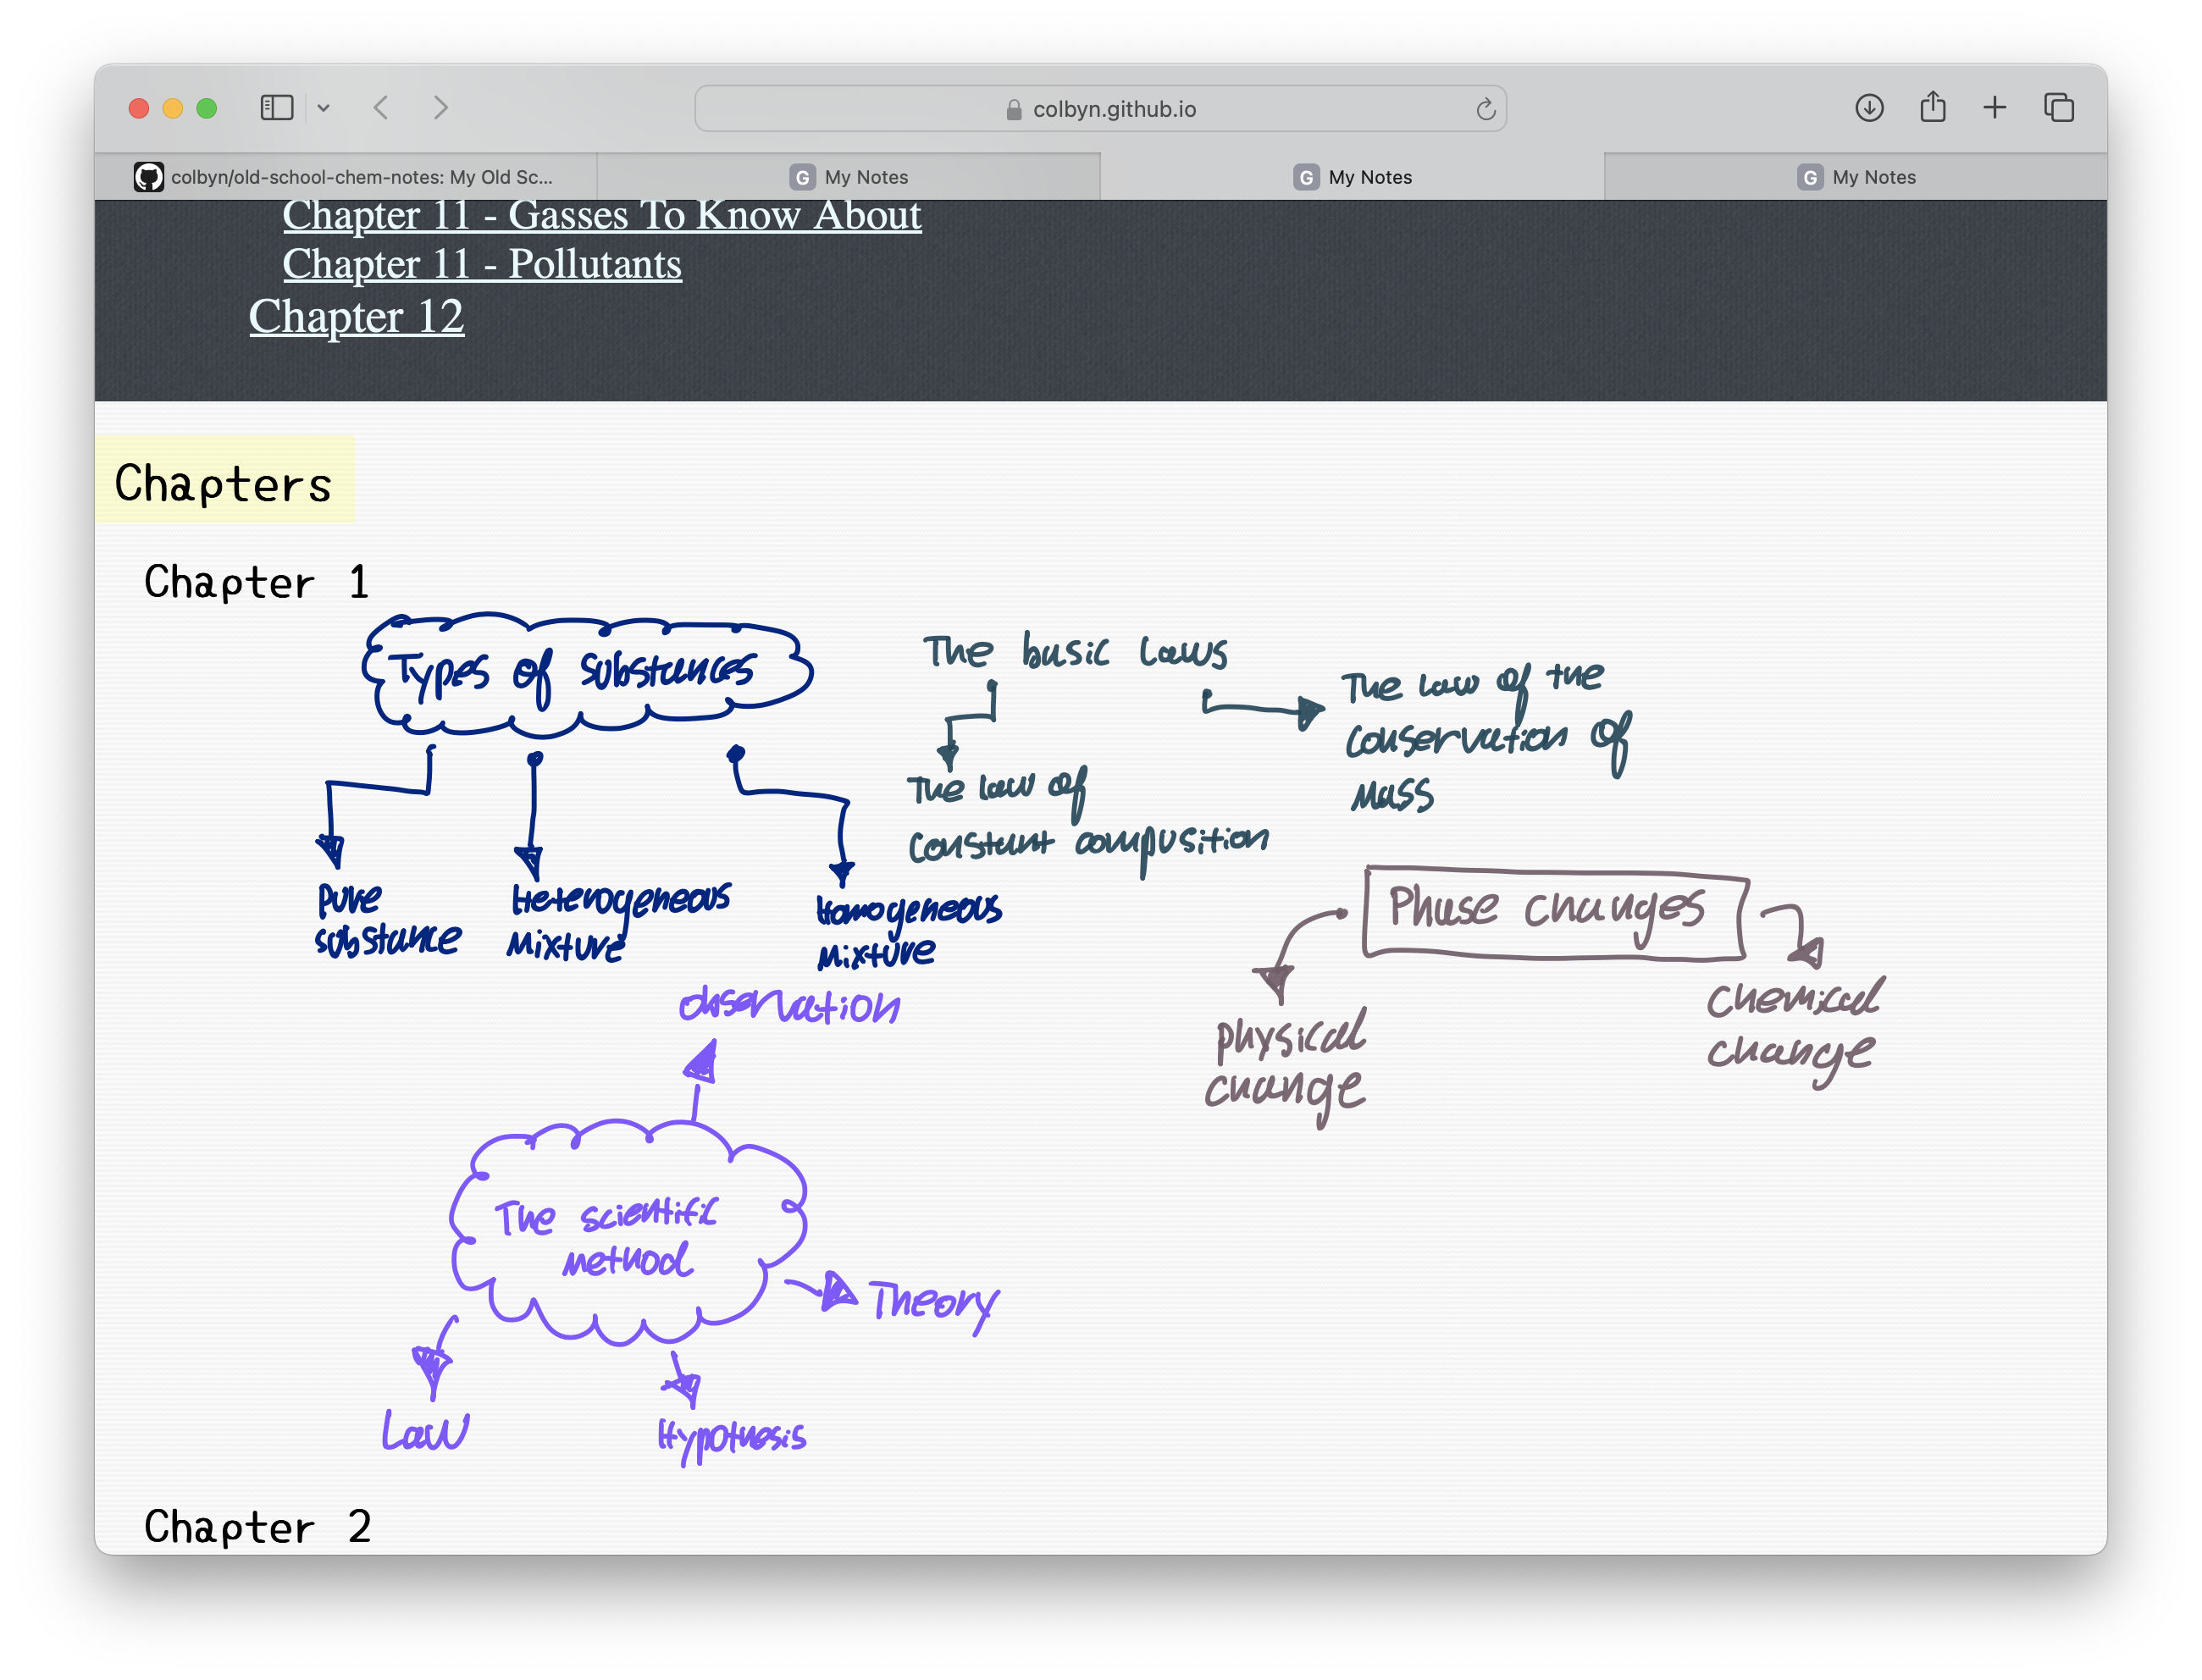 colbyn.github.io
colbyn/old-school-chem-notes: My Old Sc...
G My Notes
G My Notes
G My Notes
Chapter 11 - Gasses To Know About
Chapter 11 - Pollutants
Chapter 12
Chapters
Chapter 1
Types of substances
Pure
substance
Heterogeneous
Mixture
Homogeneous
Mixture
The basic laws
The law of
constant composition
The law of the
conservation of
Mass
Phase changes
physical
change
chemical
change
observation
The scientific
method
Theory
Law
Hypothesis
Chapter 2